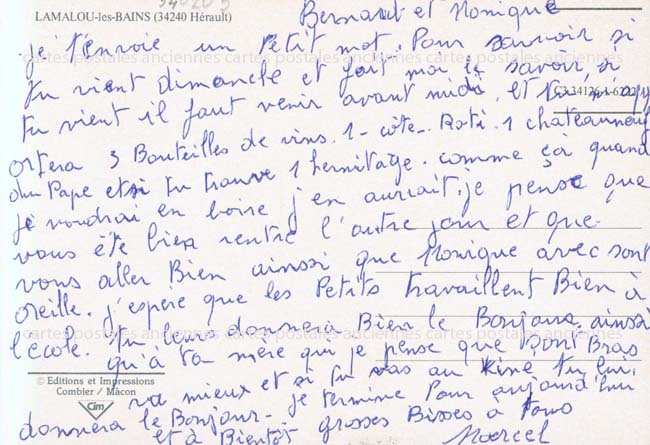 LAMALOU-les-BAINS (34240 Hérault)
Bernard et Monique
je t'envoie un Petit mot. Pour savoir si
tu vient dimanche et fait moi le savoir, si
tu vient il faut venir avant midi, et tu m'ap
C3 34126-1-6222
ortera 3 Bouteilles de vins. 1- côte- Roti. 1 châteauneuf
du Pape et si tu trouve 1 hermitage. comme ça quand
je voudrai en boire j'en aurrait. je pense que
vous été bien rentre l'autre jour et que
vous aller Bien ainsi que Monique avec sont
oreille. j'espere que les Petits travaillent Bien à
l'école. Tu leur donnera Bien le Bonjour. ainsi
qu'à ta mère qui je pense que sont Bras
va mieux et si tu vas au Kine tu lui
donnera le Bonjour- je termine Pour aujourd'hui
et à Bientôt grosses Bisses à tous
Marcel
© Editions et Impressions
Combier / Mâcon
Cim
cartes postales anciennes cartes postales anciennes cartes postales anciennes
cartes postales anciennes cartes postales anciennes cartes postales anciennes